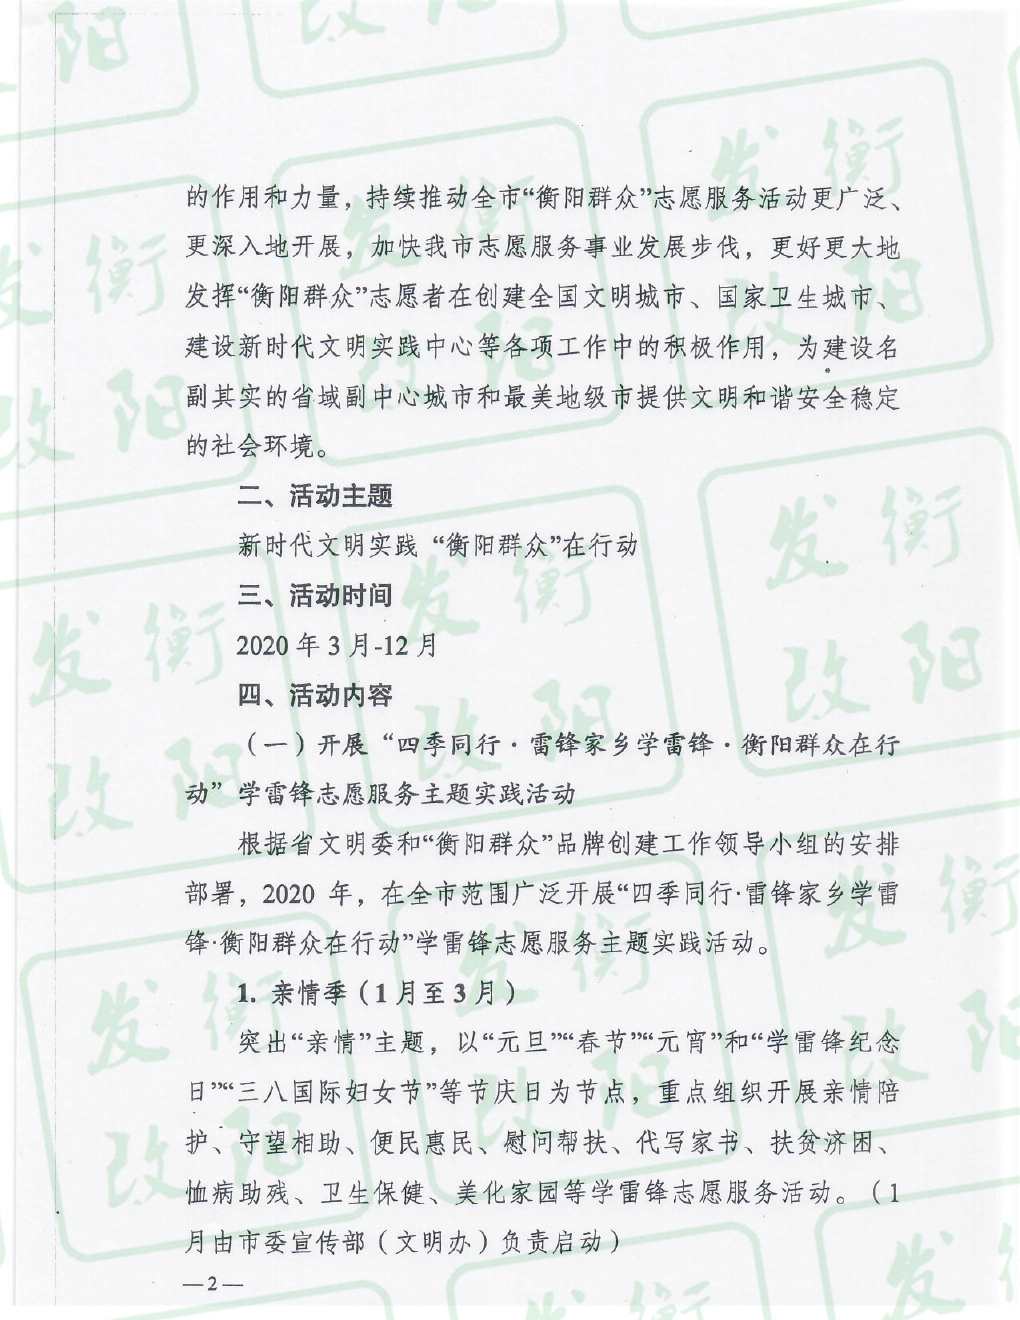 的作用和力量，持续推动全市“衡阳群众”志愿服务活动更广泛、
更深入地开展，加快我市志愿服务事业发展步伐，更好更大地
发挥“衡阳群众”志愿者在创建全国文明城市、国家卫生城市、
建设新时代文明实践中心等各项工作中的积极作用，为建设名
副其实的省域副中心城市和最美地级市提供文明和谐安全稳定
的社会环境。
二、活动主题
新时代文明实践 “衡阳群众”在行动
三、活动时间
2020 年 3 月-12 月
四、活动内容
（一）开展“四季同行·雷锋家乡学雷锋·衡阳群众在行
动”学雷锋志愿服务主题实践活动
根据省文明委和“衡阳群众”品牌创建工作领导小组的安排
部署，2020 年，在全市范围广泛开展“四季同行·雷锋家乡学雷
锋·衡阳群众在行动”学雷锋志愿服务主题实践活动。
1. 亲情季（1 月至 3 月）
突出“亲情”主题，以“元旦”“春节”“元宵”和“学雷锋纪念
日”“三八国际妇女节”等节庆日为节点，重点组织开展亲情陪
护、守望相助、便民惠民、慰问帮扶、代写家书、扶贫济困、
恤病助残、卫生保健、美化家园等学雷锋志愿服务活动。（1
月由市委宣传部（文明办）负责启动）
—2—
衡阳
发改